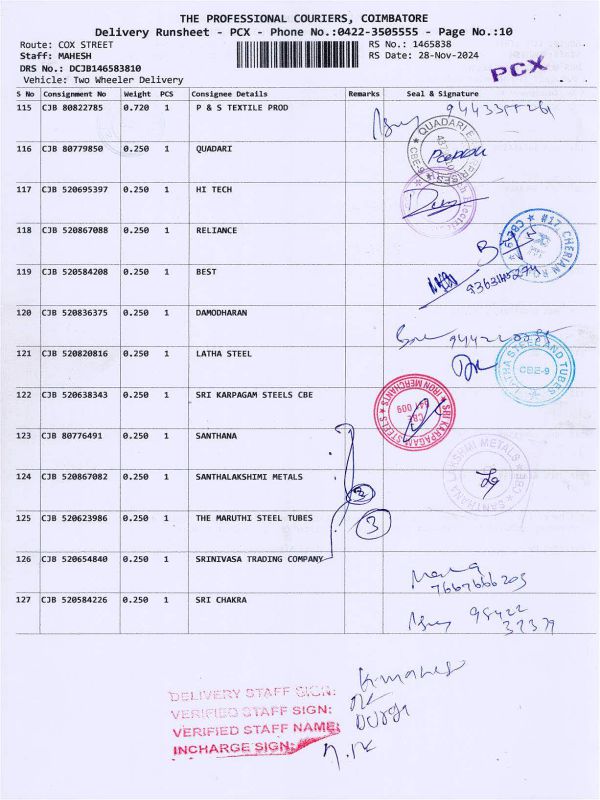 THE PROFESSIONAL COURIERS, COIMBATORE
Delivery Runsheet - PCX - Phone No.:0422-3505555 - Page No.:10
Route: COX STREET
RS No.: 1465838
Staff: MAHESH
RS Date: 28-Nov-2024
DRS No.: DCJB146583810
Vehicle: Two Wheeler Delivery
PCX
S No Consignment No Weight PCS Consignee Details Remarks Seal & Signature
115 CJB 80822785 0.720 1 P & S TEXTILE PROD
116 CJB 80779850 0.250 1 QUADARI
117 CJB 520695397 0.250 1 HI TECH
118 CJB 520867088 0.250 1 RELIANCE
#17, CHERIAN
CBE-9
119 CJB 520584208 0.250 1 BEST
120 CJB 520836375 0.250 1 DAMODHARAN
121 CJB 520820816 0.250 1 LATHA STEEL
STEEL AND TUBES
CBE-9
122 CJB 520638343 0.250 1 SRI KARPAGAM STEELS CBE
SRI KARPAGAM STEELS
IRON MERCHANTS
CBE
641 009
123 CJB 80776491 0.250 1 SANTHANA
124 CJB 520867082 0.250 1 SANTHALAKSHIMI METALS
SANTHANA LAKSHMI METALS
125 CJB 520623986 0.250 1 THE MARUTHI STEEL TUBES
3
126 CJB 520654840 0.250 1 SRINIVASA TRADING COMPANY
7667666203
127 CJB 520584226 0.250 1 SRI CHAKRA
98422
37379
DELIVERY STAFF SIGN:
VERIFIED STAFF SIGN:
VERIFIED STAFF NAME: Durga
INCHARGE SIGN: